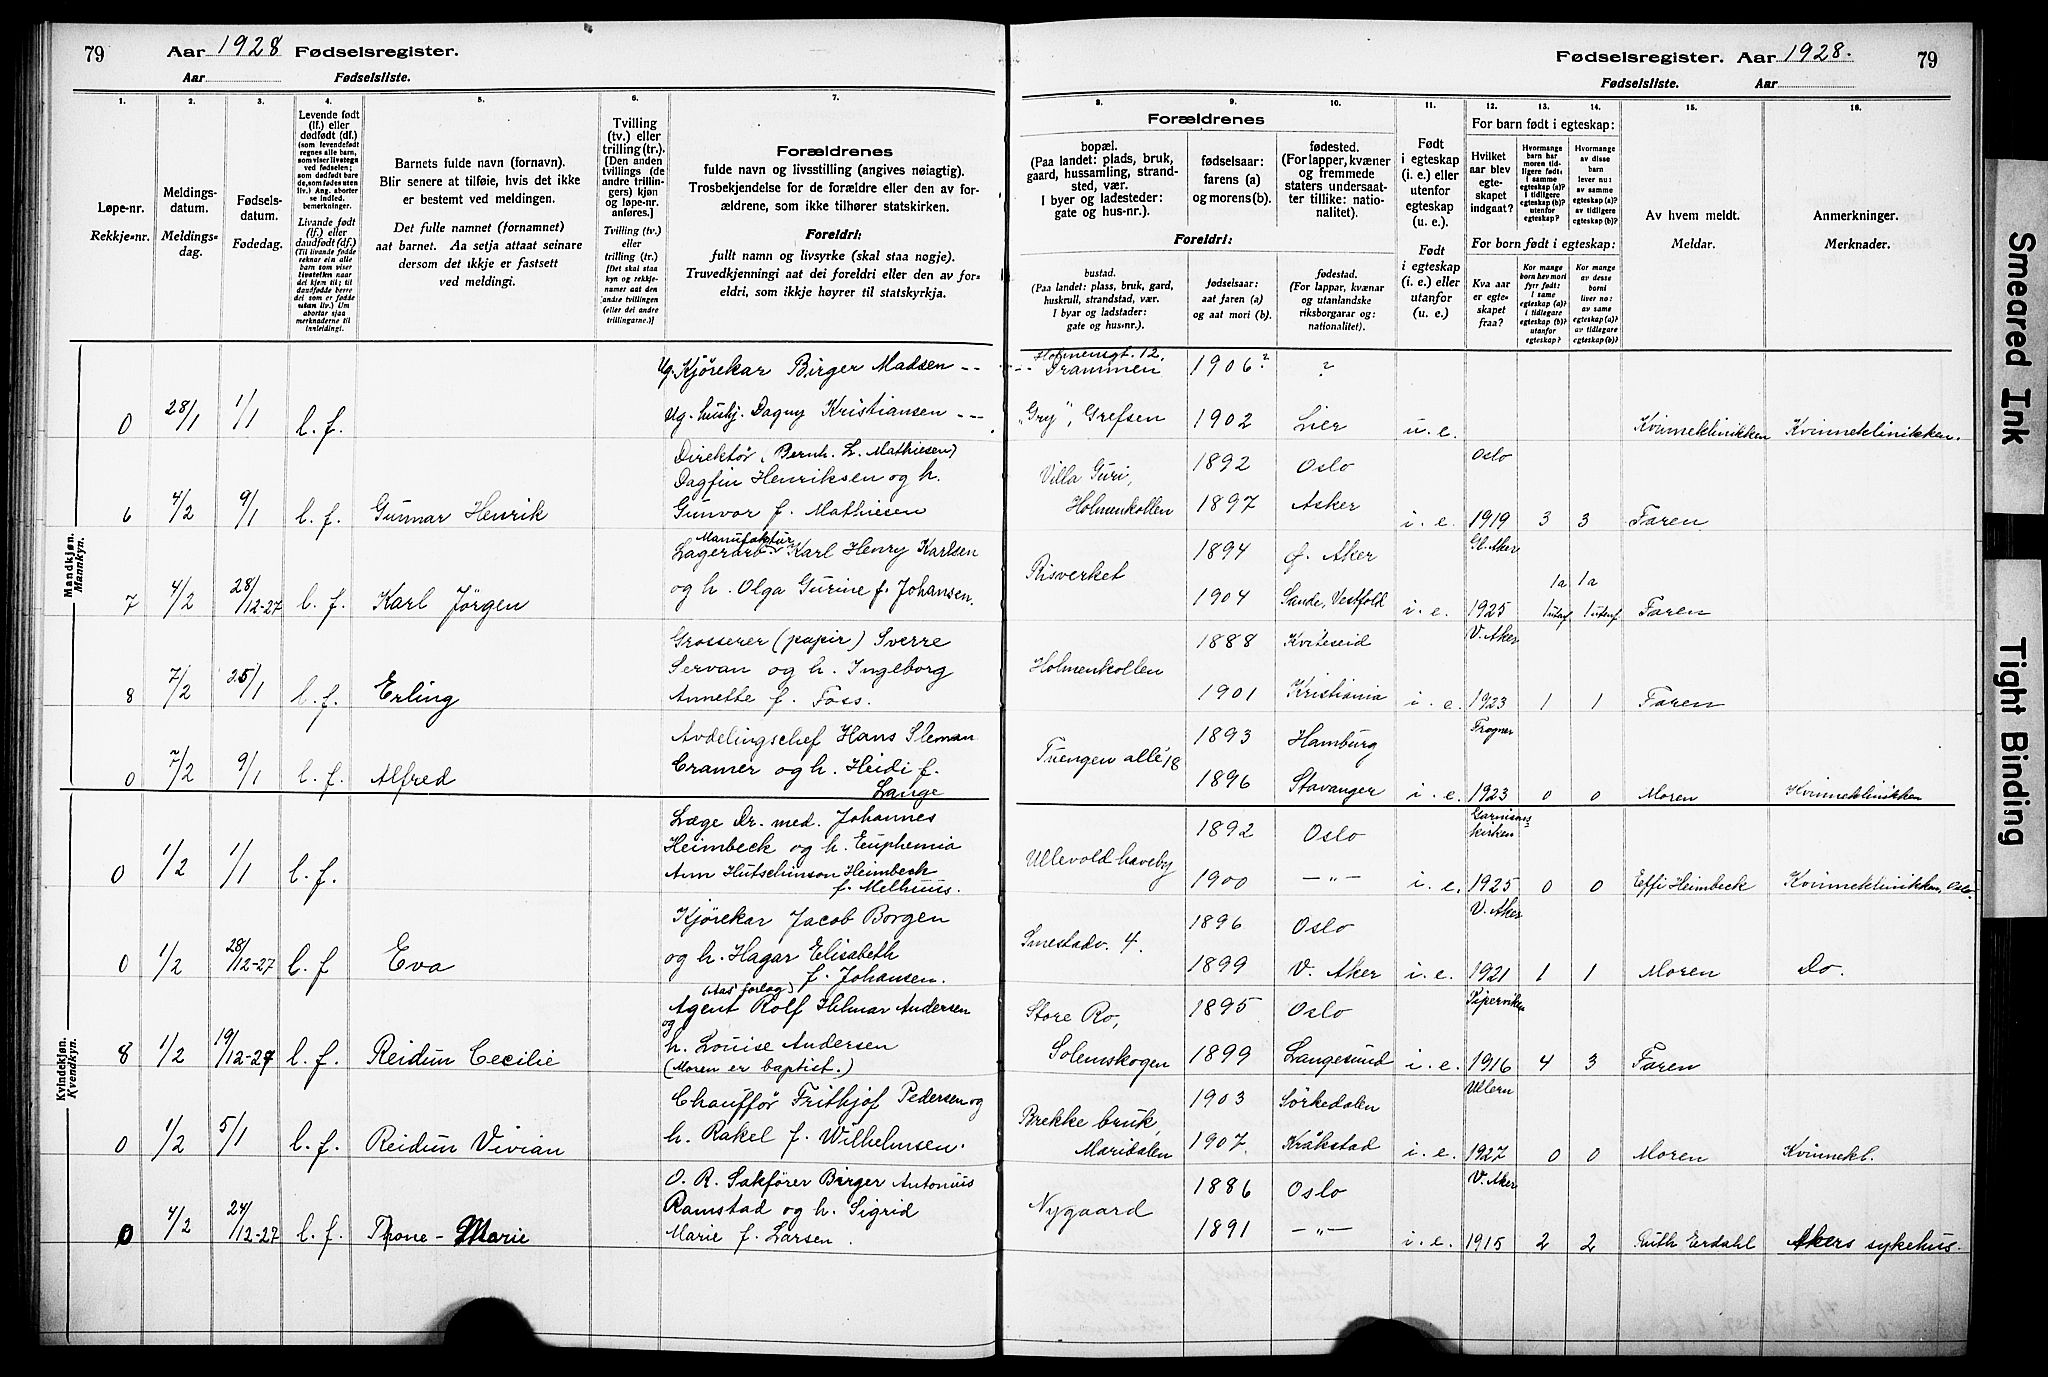 79 Aar 1928 Fødselsregister.
Aar Fødselsliste.
Fødselsregister. Aar 1928. 79
Fødselsliste. Aar
1. 2. 3. 4. 5. 6. 7.
Løpe-nr.
Rekkje-nr.
Meldings-
datum.
Meldings-
dag.
Fødsels-
datum.
Fødedag.
Levende født
(lf.) eller
dødfødt (df.)
Livande født
(lf.) eller
daudfødt (df.)
Barnets fulde navn (fornavn).
Blir senere at tilføie, hvis det ikke
er bestemt ved meldingen.
Det fulle namnet (fornamnet)
aat barnet. Aa setja attaat seinare
dersom det ikkje er fastsett
ved meldingi.
Tvilling
(tv.) eller
trilling (tr.).
(Den anden
tvillings (de
andre trillin-
gers) kjøn
og løpe-nr.
anføres.]
Tvilling (tv.)
eller
trilling (tr.)
Forældrenes
fulde navn og livsstilling (angives nøiagtig).
Trosbekjendelse for de forældre eller den av for-
ældrene, som ikke tilhører statskirken.
Foreldri:
fullt namn og livsyrke (skal staa nøgje).
Truvedkjenningi aat dei foreldri eller den av for-
eldri, som ikkje høyrer til statskyrkja.
8. 9. 10. 11. 12. 13. 14. 15. 16.
Forældrenes
bopæl.
(Paa landet: plads, bruk,
gaard, hussamling, strand-
sted, vær.
I byer og ladesteder:
gate og hus-nr.).
Foreldri:
bustad.
(Paa landet: plass, bruk, gard,
huskrull, strandstad, vær.
I byar og ladstader:
gate og hus-nr.).
fødselsaar:
farens (a)
og morens (b).
fødselsaar:
aat faren (a)
og aat mori (b).
fødested.
(For lapper, kvæner
og fremmede
staters undersaat-
ter tillike: natio-
nalitet).
fødestad.
(For lappar, kvænar
og utanlandske
riksborgarar og:
nationalitet).
Født
i egteskap
(i. e.) eller
utenfor
egteskap
(u. e.).
Født
i egteskap
(i. e.) eller
utanfor
(u. e.).
For barn født i egteskap:
Hvilket
aar blev
egte-
skapet
indgaat?
For born født i egteskap:
Kva aar
er egte-
skapet
fraa?
Av hvem meldt.
Meldar.
Anmerkninger.
Merknader.
Mandkjøn.
Mannkyn.
Ug. Kjørekar Birger Madsen -- -- Holmensgt. 12, Drammen 1906? ?
0 28/1 1/1 l. f. Ug. hushj. Dagny Kristiansen --- "Gry", Grefsen 1902 Lier u. e. Kvinneklinikken Kvinneklinikken.
Direktør (Bernh. L. Mathiesen)
Dagfin Henriksen og h. Villa Guri, 1892 Oslo Oslo
6 4/2 9/1 l. f. Gunnar Henrik Gunvor f. Mathiesen Holmenkollen 1897 Asker i. e. 1919 3 3 Faren
Manufaktur
Lagerarb. Karl Henry Karlsen Risverket 1894 Ø. Aker Gl. Aker
7 4/2 28/12-27 l. f. Karl Jörgen og h. Olga Gurine f. Johansen. 1904 Sande, Vestfold i. e. 1925 1a 1utenf 1a 1utenf Faren
Grosserer (papir) Sverre 1888 Kviteseid V. Aker
Servan og h. Ingeborg Holmenkollen
8 7/2 25/1 l. f. Erling Annette f. Foss. 1901 Kristiania i. e. 1923 1 1 Faren
Avdelingschef Hans Sleman 1893 Hamburg Frogner
0 7/2 9/1 l. f. Alfred Cramer og h. Heidi f. Lange Tuengen allé 18 1896 Stavanger i. e. 1923 0 0 Moren Kvinneklinikken
Kvindekjøn.
Kvendkyn.
Læge Dr. med. Johannes 1892 Oslo Garnisons-kirken
Heimbeck og h. Euphemia Ullevold haveby
0 1/2 1/1 l. f. Ann Hutschinson Heimbeck f. Melhuus. 1900 -"- i. e. 1925 0 0 Effi Heimbeck Kvinneklinikken, Oslo.
Kjörekar Jacob Borgen 1896 Oslo V. Aker
0 1/2 28/12-27 l. f Eva og h. Hagar Elisabeth f. Johansen. Smestadv. 4. 1899 V. Aker i. e. 1921 1 1 Moren Do.
(Aas' forlag)
Agent Rolf Hilmar Andersen Store Ro, 1895 Oslo Pipervikn
8 1/2 19/12-27 l. f. Reidun Cecilie og h. Louise Andersen Solemskogen 1899 Langesund i. e. 1916 4 3 Faren
(Moren er baptist.)
Chauffør Frithjof Pedersen og Brekke bruk, 1903 Sörkedalen Ullern
0 1/2 5/1 l. f. Reidun Vivian h. Rakel f. Wilhelmsen. Maridalen 1907. Kråkstad i. e. 1927 0 0 Moren Kvinnekl.
O. R. Sakfører Birger Antonius 1886 Oslo V. Aker
Ramstad og h. Sigrid Nygaard
0 4/2 24/12-27 l. f. Thone - Marie Marie f. Larsen. 1891 -"- i. e. 1915 2 2 Ruth Erdahl Akers sykehus.
Smeared Ink
Tight Binding